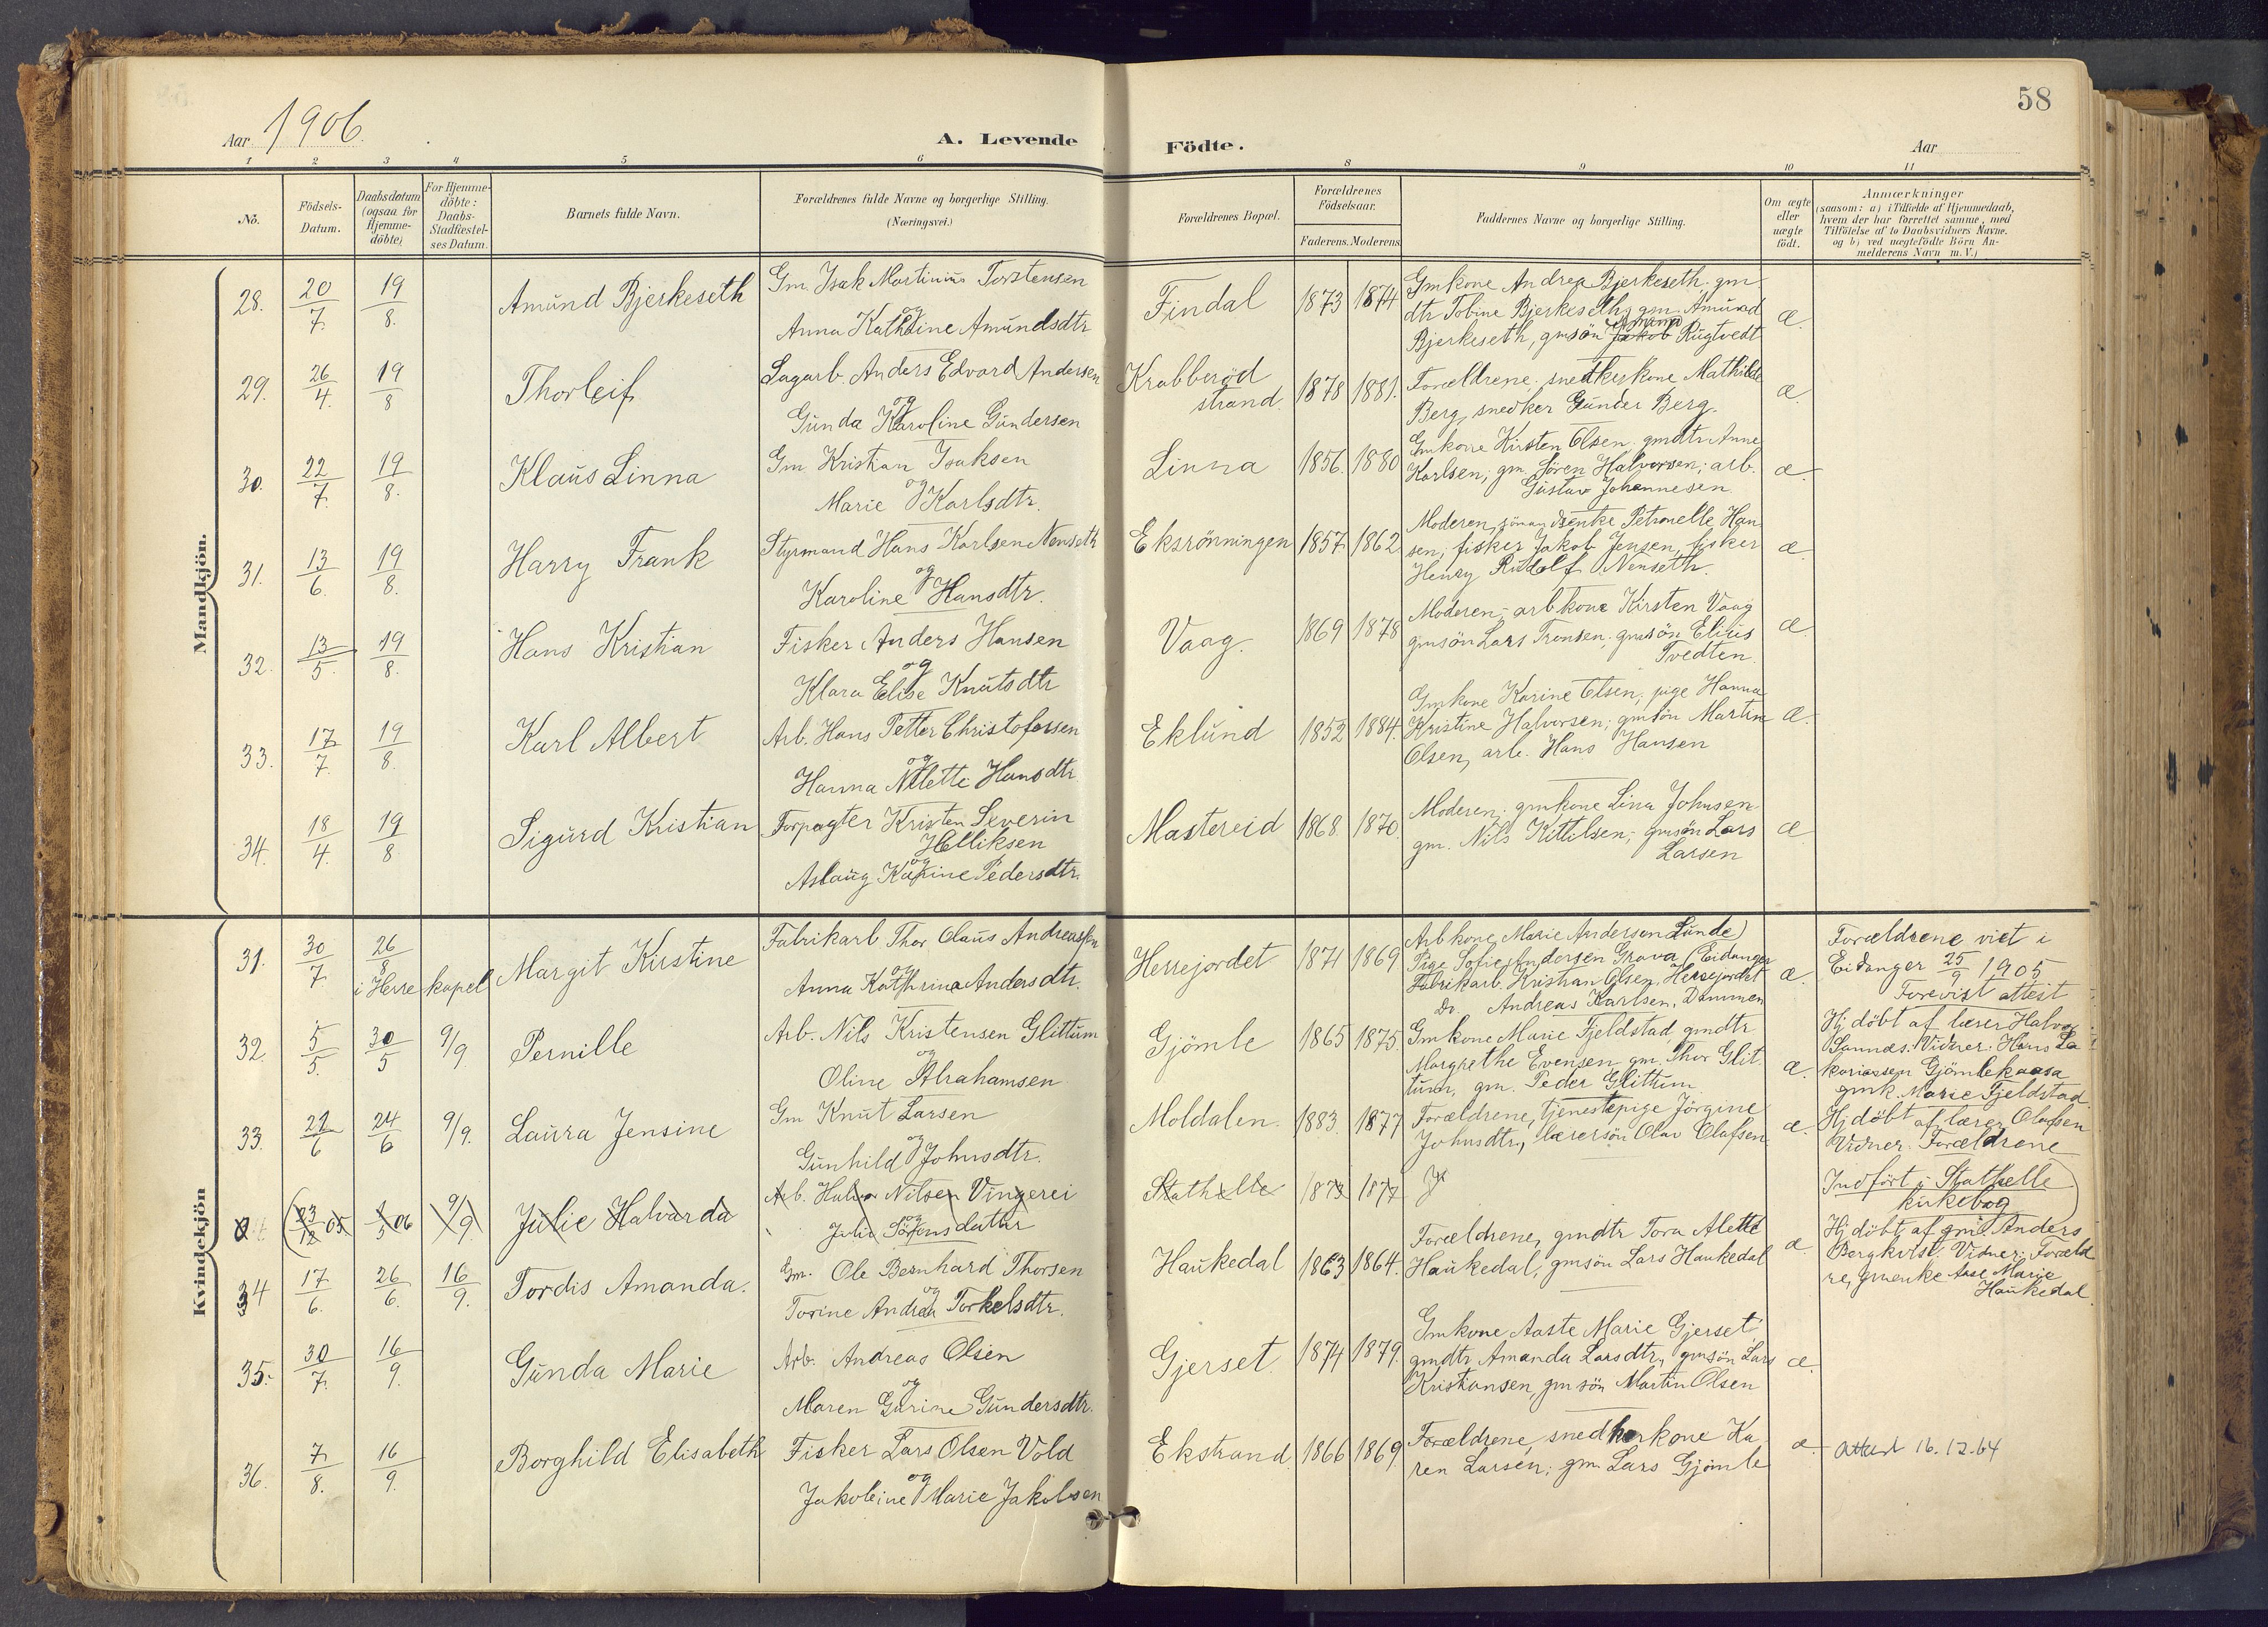 58
Aar 1906.
A. Levende Födte.
Aar
1 2 3 4 5 6 8 9 10 11
No.
Födsels-
Datum.
Daabsdatum
(ogsaa for
Hjemme-
döbte)
For Hjemme-
döbte:
Daabs-
Stadfæstel-
ses Datum.
Barnets fulde Navn.
Forældrenes fulde Navne og borgerlige Stilling.
(Næringsvei.)
Forældrenes Bopæl.
Forældrenes
Födselsaar.
Faderens. Moderens
Faddernes Navne og borgerlige Stilling.
Om ægte
eller
uægte
födt.
Anmærkninger
(saasom: a) i Tilfælde af Hjemmedaab,
hvem der har forrettet samme, med
Tilföielse af to Daabsvidners Navne.
og b) ved uægtefödte Börn An-
melderens Navn m. V.)
Mandkjön.
28. 20/7. 19/8. Amund Bjerkeseth
Gm. Isak Martinius Torstensen
og
Anna Kathrine Amundsdtr
Findal 1873 1874
Gmkone Andrea Bjerkeseth. gm
dtr Tobine Bjerkeseth; gm. Amund
Bjerkeseth, gmsön Jakob Rugtvedt
æ.
29. 26/4. 19/8 Thorleif
Sagarb. Anders Edvard Andersen
og
Gunda Karoline Gundersen
Krabberöd
strand. 1878 1881.
Forældrene. snedkerkone Mathilde
Berg, snedker Gunder Berg.
æ.
30. 22/7. 19/8. Klaus Linna
Gm. Kristian Isaksen
og
Marie Karlsdtr.
Linna 1856. 1880
Gmkone Kirsten Olsen. gmdtr. Anne
Karlsen; gm. Sören Halvorsen; arb.
Gustav Johannesen
æ.
31. 13/6. 19/8. Harry Frank
Styrmand Hans Karlsen Nenseth
og
Karoline Hansdtr.
Eksrönningen 1857. 1862
Moderen, sömandsenke Petronelle Han
sen; fisker Jakob Jensen, fisker
Henry Rudolf Nenseth.
æ
32. 13/5. 19/8. Hans Kristian
Fisker Anders Hansen
og
Klara Elise Knutsdtr
Vaag. 1869 1878
Moderen; arbkone Kirsten Vaag
gmsön Lars Tronsen; gmsön Elius
Tvedten.
æ
33. 17/7. 19/8. Karl Albert
Arb. Hans Petter Christofersen
og
Hanna Nilette Hansdtr.
Eklund 1852 1884.
Gmkone Karine Olsen; pige Hanna
Kristine Halvorsen; gmsön Martin
Olsen, arb. Hans Hansen
æ.
34. 18/4. 19/8 Sigurd Kristian
Forpagter Kristen Severin
Helliksen
og
Aslaug Karine Pedersdtr.
Mastereid 1868 1870.
Moderen; gmkone Lina Johnsen
gm. Nils Kittilsen; gmsön Lars
Larsen
æ
Kvindekjön
31. 30/7. 26/8
i Herre kapel Margit Kirstine
Fabrikarb. Thor Olaus Andreassen
og
Anna Kathrine Andersdtr.
Herrejordet 1871 1869
Arbkone Marie Andersen Lunde)
Pige Sofie Andersen Grava (Eidanger
Fabrikarb. Kristian Olsen, Herrejordet
Do. Andreas Karlsen, Dammen
æ.
Forældrene viet i
Eidanger 25/9 1905
Forevist attest
32. 5/5. 30/5 9/9 Pernille
Arb. Nils Kristensen Glittum
og
Oline Abrahamsen
Gjömle 1865 1875.
Gmkone Marie Fjeldstad, gmdtr
Margrethe Evensen, gm. Thor Glit
tum, gm. Peder Glittum
æ.
Hj. döbt af lærer Halvor
Sannes. Vidner: Hans Za
kariassen Gjömlekaasa
gmk. Marie Fjeldstad.
33. 21/6 24/6 9/9. Laura Jensine
Gm Knut Larsen
og
Gunhild Johnsdtr.
Moldalen. 1883. 1877
Forældrene, tjenestepige Jörgine
Johnsdtr, lærersön Olav Olafsen
æ.
Hj. döbt af lærer Olafsen
Vidner. Forældrene
(23/12 05 06 9/9 Julie Halvarda
Arb. Halvor Nilsen Vingerei
og
Julie Sörensdatter
Stathelle 1873 1877
Indfört i Stathelle
kirkebog
34 17/6. 26/6. 16/9. Tordis Amanda.
Gm. Ole Bernhard Thorsen
og
Torine Andrea Torkelsdtr.
Haukedal 1863 1864.
Forældrene, gmdtr Tora Alette
Haukedal, gmsön Lars Haukedal
æ
Hj döbt af gm. Anders
Bergkvist. Vidner: Foræld
re, gmenke Aase Marie
Haukedal.
35. 30/7. 16/9. Gunda Marie
Arb. Andreas Olsen
og
Maren Gurine Gundersdtr.
Gjerset. 1874 1879.
Gmkone Aaste Marie Gjerset,
gmdtr Amanda Larsdtr, gmsön Lars
Kristiansen, gmsön Martin Olsen
æ.
36. 7/8. 16/9. Borghild Elisabeth
Fisker Lars Olsen Vold
og
Jakobine Marie Jakobsen
Ekstrand. 1866 1869.
Forældrene, snedkerkone Ka
ren Larsen; gm. Lars Gjömle
æ.
Attest 16.12.64